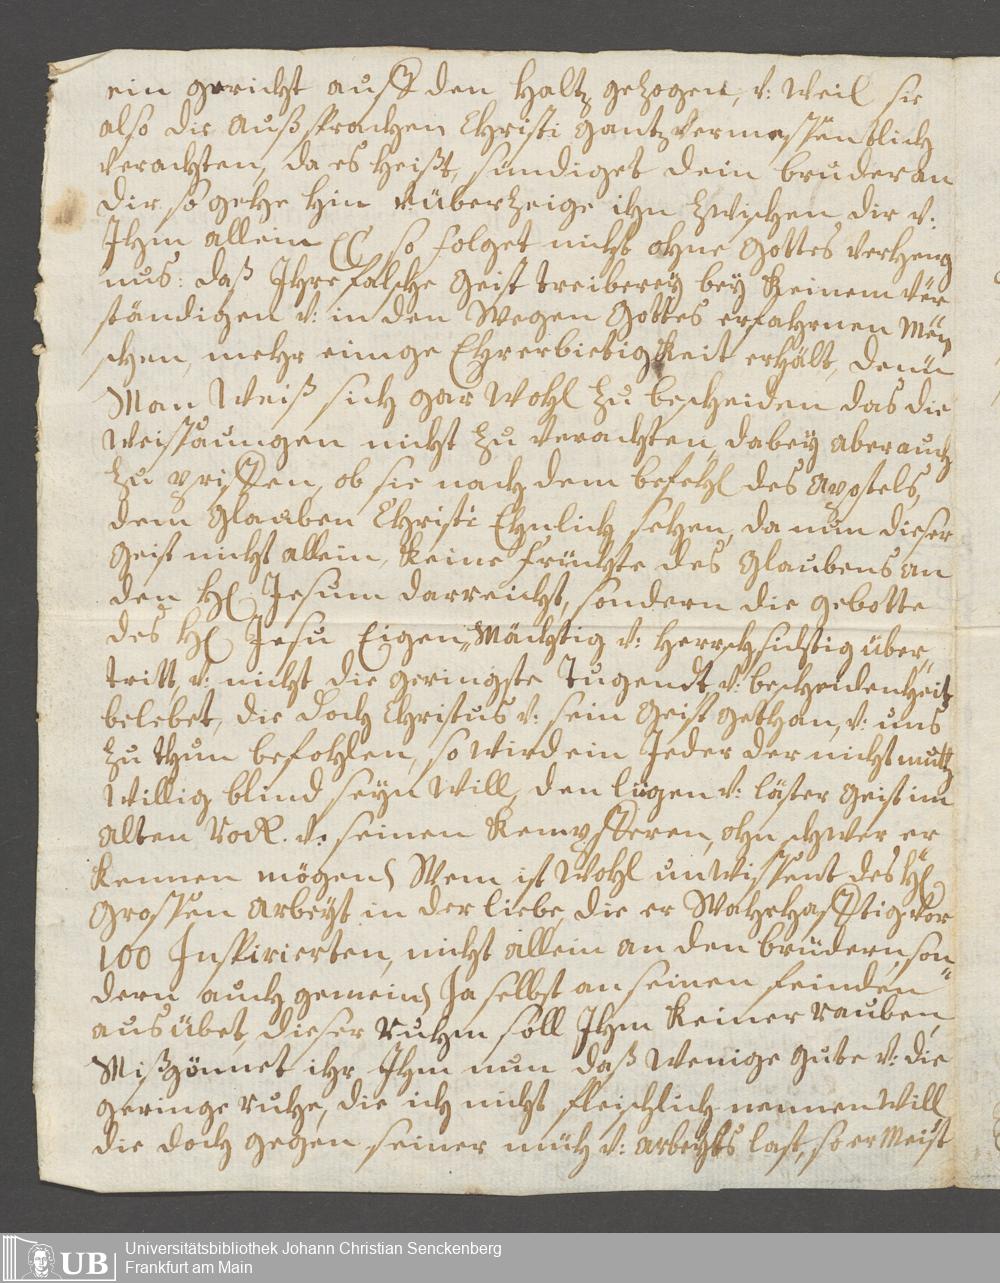 ein gericht auff den Haltz gezogen, v: weil sie
also die außsprachen Christi gantz vermessentlich
verachten, da es heist, sündiget dein bruder an
dir so gehe hin v: überzeige ihn zwischen dir v:
Ihm allein so folget nicht ohne Gottes verheng
nus: daß Ihre falsche Geist treiberey bey keinem ver
ständigen v: in den Wegen Gottes erfahrnen Men
schen, mehr einige Ehrerbietigkeit erhält, denn
Man Weiß sich gar Wohl zu bescheiden das die
Weissaungen nicht zu verachten, dabey aber auch
zu prüffen, ob sie nach dem befehl des Apostels,
dem Glauben Christi Ehnlich sehen, da nun dieser
Geist nicht allein, keine früchte des Glaubens an
den H Jesum darreicht, sondern die gebotte
des H Jesu Eigen Mächtig v: herrschsichtig über
tritt, v: nicht die geringste Tugendt v: bescheidenheit
belebet, die doch Christus v: sein Geist gethan, v: uns
zu thun befohlen, so wird ein Jeder der nicht muth
willig blind seyn will, den lügen v: läster Geist im
alten Rock. v: seinen Kempfferen, ohnschwer er
kennen mögen Wem ist Wohl unwissent des H
grossen Arbeyt in der liebe, die er Wahrhafftig vor
100 Inspirierten, nicht allein an den brüdern, son
dern auch gemein Ja selbst an seinen feinden
ausübet, dieser Ruhm soll Ihm keiner rauben,
Mißgönnet ihr Ihm nun daß Wenige gute v: die
geringe ruhe, die ich nicht fleischlich nennen will
die doch gegen seiner müh v: arbeyts last, so er Meist
Universitätsbibliothek Johann Christian Senckenberg
Frankfurt am Main
UB